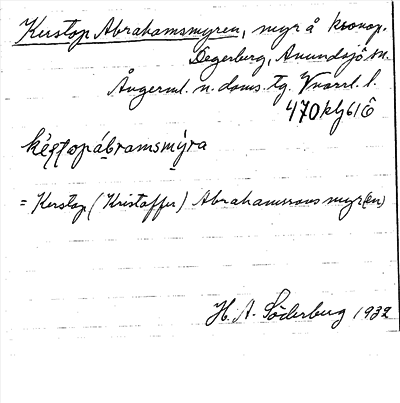 Kerstop Abrahamsmyren, myr å kronop.
Degerberg, Anundsjö sn.
Ångerml. n. doms. tg. Vnorrl. l.
470 klj 61 Ö
kérstopábramsmýra
= Kerstop (Kristoffer) Abrahamssons myr(en)
H. A. Söderberg 1932